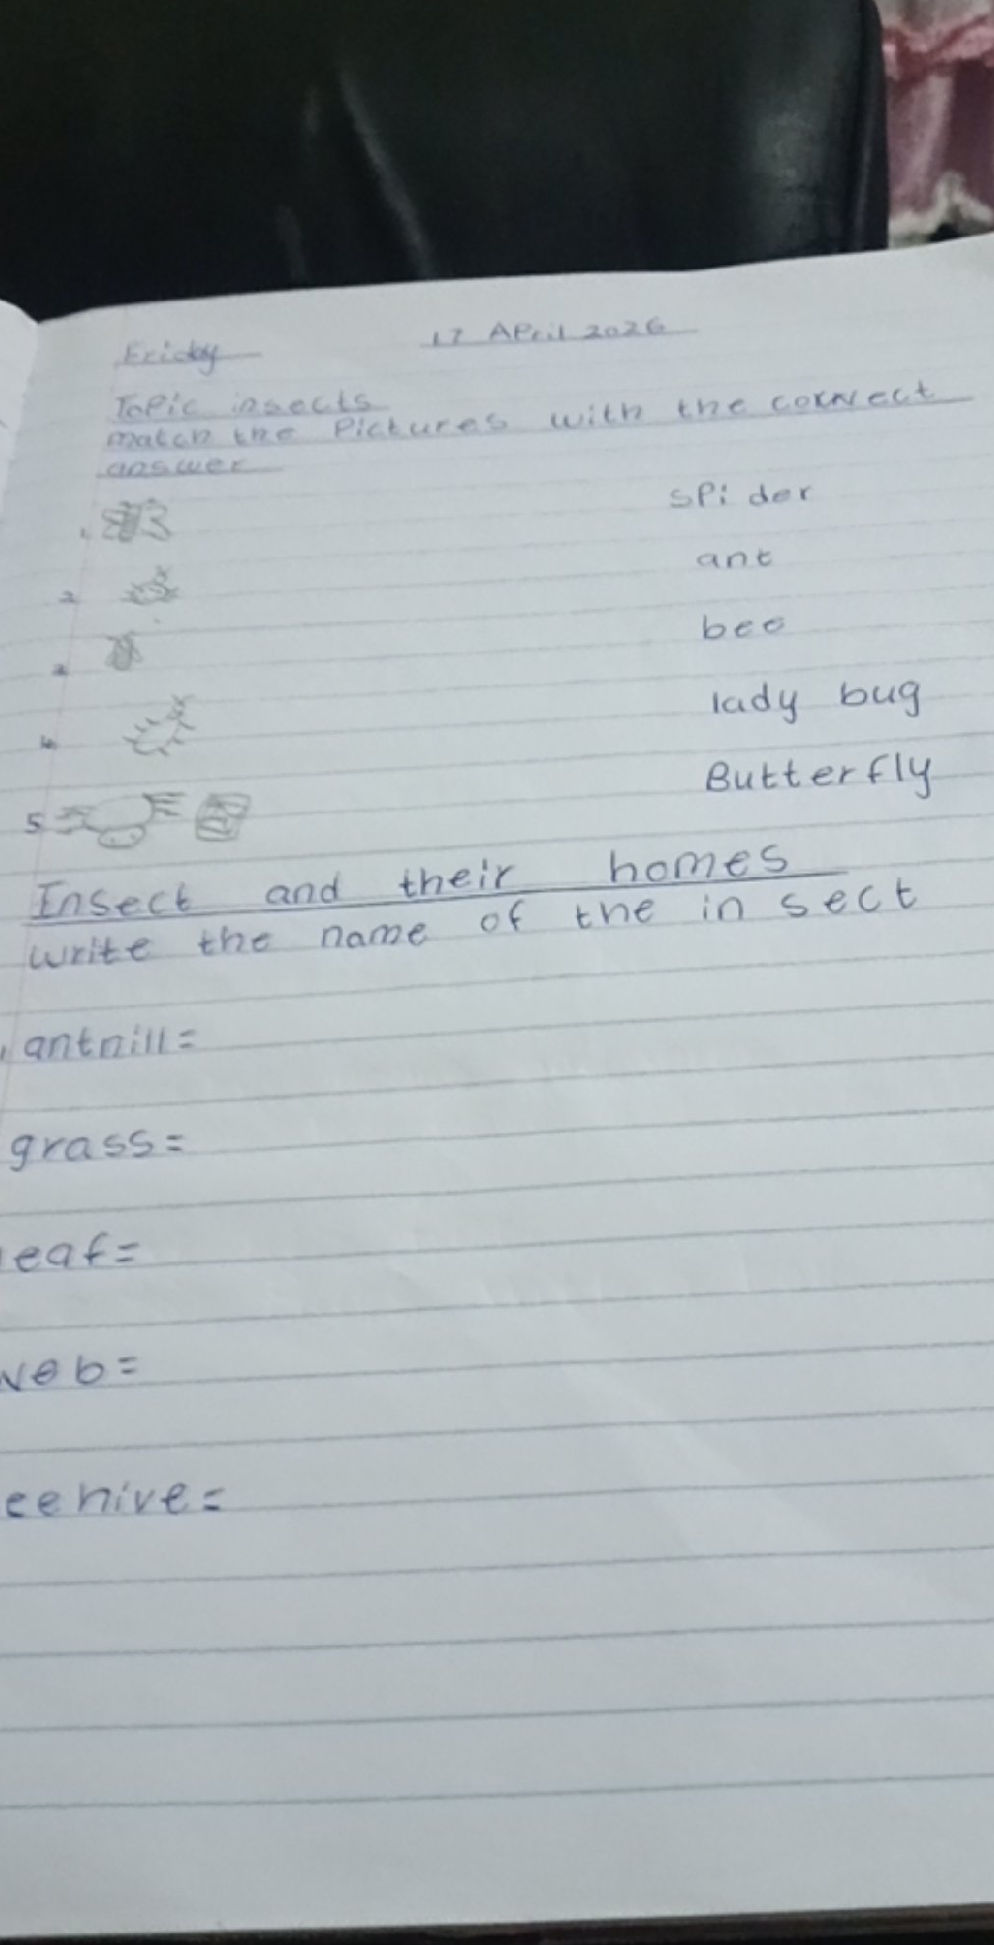 Friday 17 April 2026
Topic insects
match the Pictures with the correct
answer
1. spider
2 ant
3 bee
4 lady bug
5 Butterfly
Insect and their homes
write the name of the in sect
anthill=
grass=
eaf=
web=
eehive=